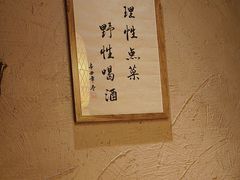 理性点菜
野性喝酒